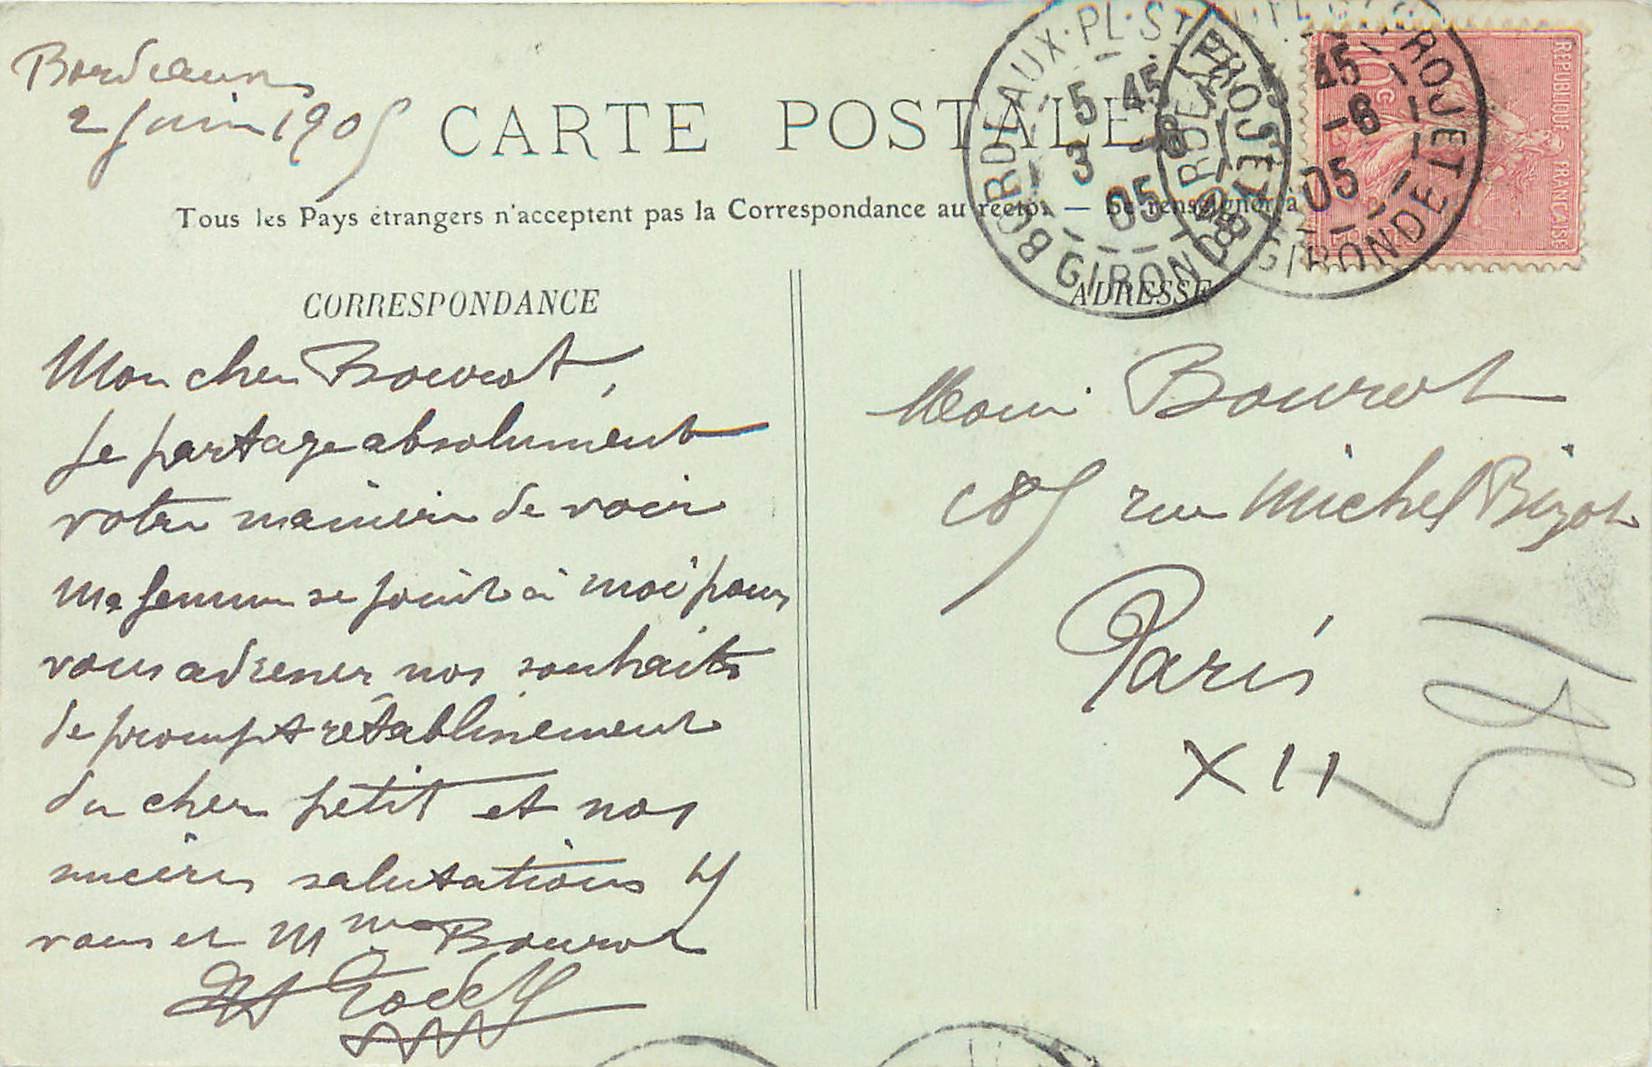 Bordeaux
2 Juin 1905
CARTE POSTALE
Tous les Pays étrangers n'acceptent pas la Correspondance au recto. — Se renseigner à
BORDEAUX-PL-ST PROJET
5 45
3 -6
05
GIRONDE
BORDEAUX
PROJET
45
-6
05
GIRONDE
REPUBLIQUE FRANÇAISE
10c
POSTES
CORRESPONDANCE
ADRESSE
Mon cher Bourrot,
Je partage absolument
votre manière de voir
ma femme se joint à moi pour
vous adresser nos souhaits
de prompt rétablissement
du cher petit et nos
sincères salutations à
vous et Mme Bourrot
Bourrot
185 rue Michel Bizot
Paris
XII